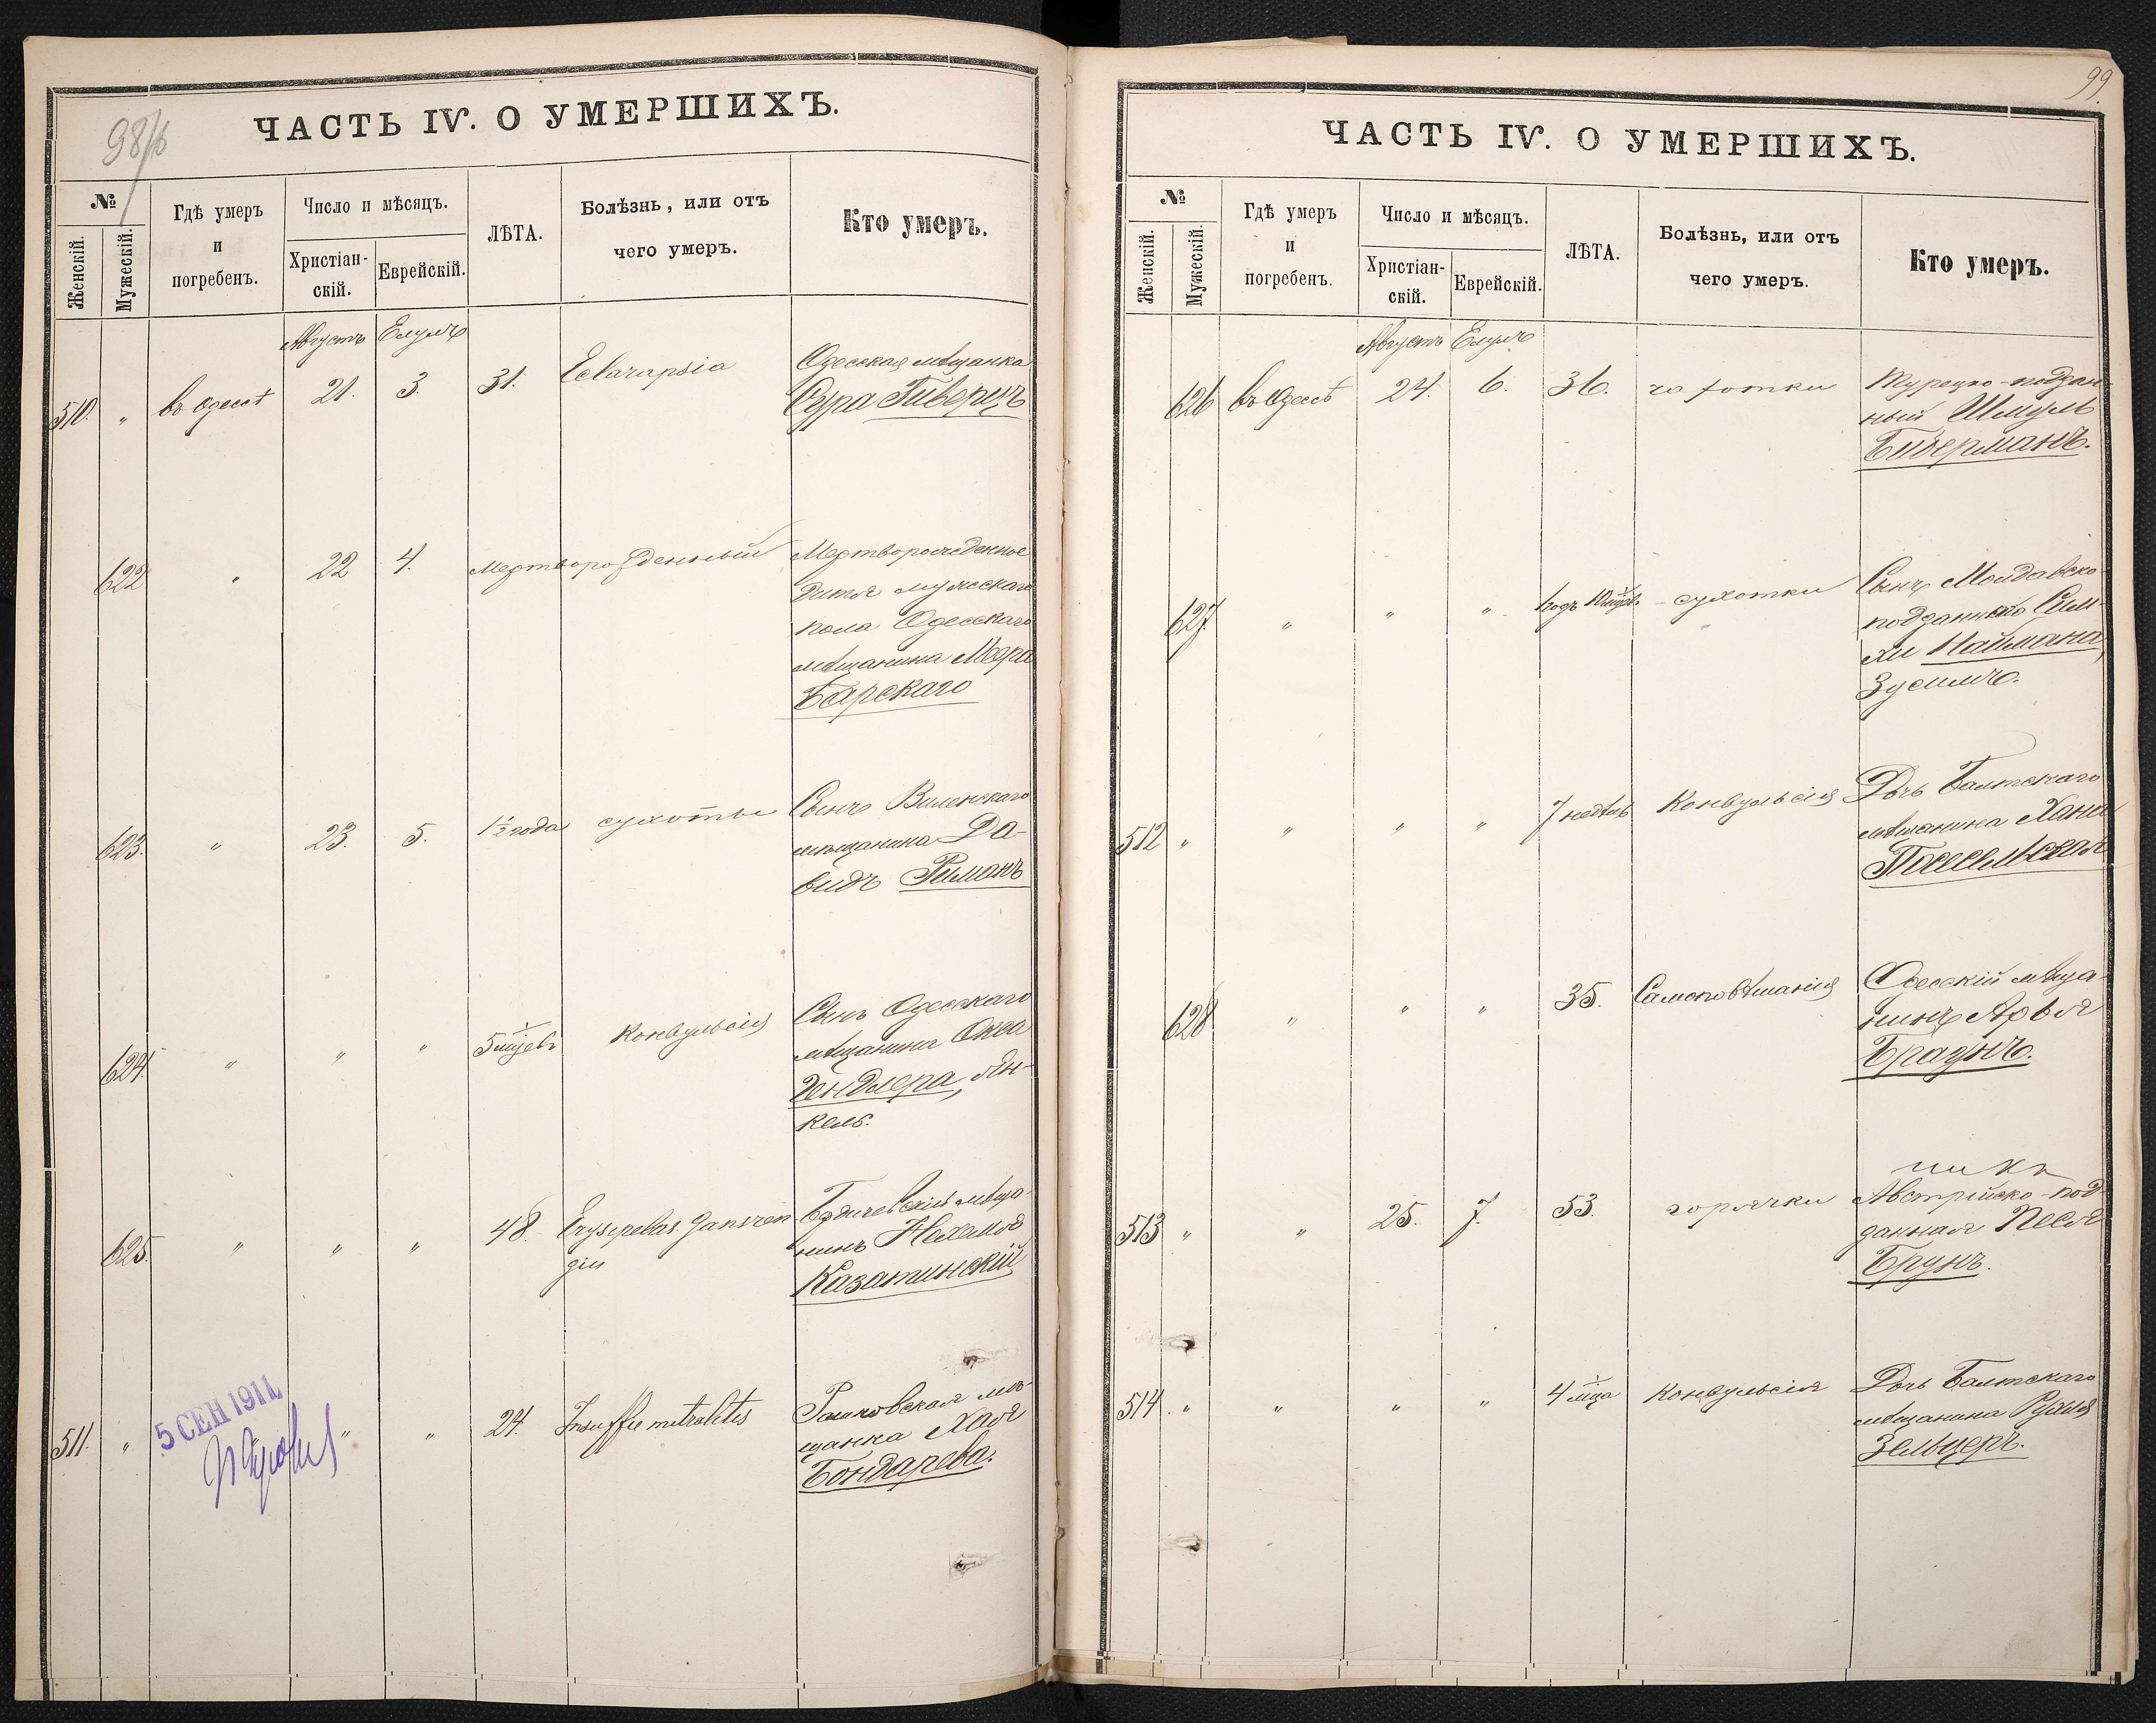 98/б
ЧАСТЬ IV. О УМЕРШИХЪ.
№
Женскій.
Мужескій.
Гдѣ умеръ
и
погребенъ.
Число и мѣсяцъ.
Христіан-
скій.
Еврейскій.
ЛѢТА.
Болѣзнь, или отъ
чего умеръ.
Кто умеръ.
Августъ Елулъ
510. " въ Одессѣ 21. 3. 31. Eclampsia Одесская мѣщанка
Сура Гиверцъ
622 " 22 4. Мертворожденный Мертворожденное
дитя мужескаго
пола Одесскаго
мѣщанина Меера
Барскаго
623. " 23. 5. 1½ года сухоты Сынъ Виленскаго
мѣщанина Да-
видъ Риманъ
624. " " " 5 мцевъ Конвульсія Сынъ Одесскаго
мѣщанина
Гендлера, Ян-
кель.
625. " " " 48. Erysipelas Бердичевскій мѣща-
нинъ Нехемья
Казатинскій
511. " " " 24. Insuffic mitralitis Рашковская мѣ-
щанка Хая
Бондарева.
5 СЕН 1911
99.
ЧАСТЬ IV. О УМЕРШИХЪ.
№
Женскій.
Мужескій.
Гдѣ умеръ
и
погребенъ.
Число и мѣсяцъ.
Христіан-
скій.
Еврейскій.
ЛѢТА.
Болѣзнь, или отъ
чего умеръ.
Кто умеръ.
Августъ Елулъ
626 въ Одессѣ 24. 6. 36. чахотки Турецко-поддан-
ный Шмуль
Биберманъ.
627. " " " 1 годъ 10 мцевъ сухотки Сынъ Молдавско-
подданнаго Сим-
хи Наймана,
Зусимъ.
512 " " " " 7 недѣль Конвульсія Дочь Балтскаго
мѣщанина Хана
Посесельская
628 " " " 35. Самоповѣшанія Одесскій мѣща-
нинъ Арья
Браунъ.
513 " " 25. 7. 53. горячки Австрійско-под-
данная Песя
Брунъ.
514. " " " " 4 мца Конвульсія Дочь Балтскаго
мѣщанина Рухля
Зельцеръ.